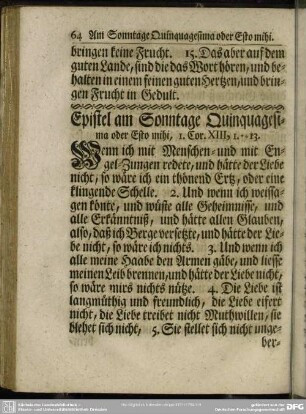 64 Am Sonntage Quinquagesima oder Esto mihi.
bringen keine Frucht. 15. Das aber auf dem
guten Lande, sind die das Wort hören, und be-
halten in einem feinen guten Hertzen, und brin-
gen Frucht in Gedult.
Epistel am Sonntage Quinquagesi-
ma oder Esto mihi, 1. Cor. XIII, 1.--13.
Wenn ich mit Menschen- und mit En-
gel-Zungen redete, und hätte der Liebe
nicht, so wäre ich ein thönend Ertz, oder eine
klingende Schelle. 2. Und wenn ich weissa-
gen könte, und wüste alle Geheimnisse, und
alle Erkänntniß, und hätte allen Glauben,
also, daß ich Berge versetzte, und hätte der Lie-
be nicht, so wäre ich nichts. 3. Und wenn ich
alle meine Haabe den Armen gäbe, und liesse
meinen Leib brennen, und hätte der Liebe nicht,
so wäre mirs nichts nütze. 4. Die Liebe ist
langmüthig und freundlich, die Liebe eifert
nicht, die Liebe treibet nicht Muthwillen, sie
blehet sich nicht, 5. Sie stellet sich nicht unge-
ber-